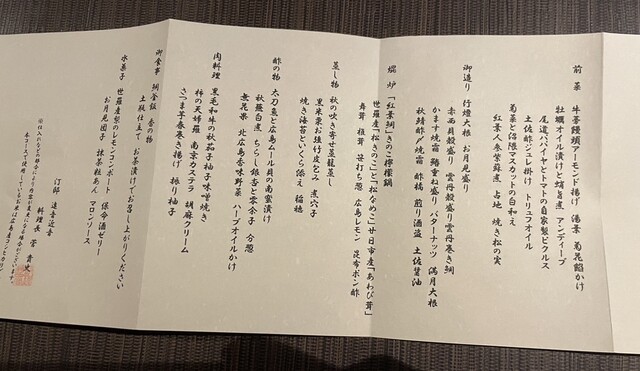 前菜 牛蒡饅頭アーモンド揚げ 湯葉 菊花餡かけ
牡蠣オイル漬けと蛸旨煮 アンディーブ
尾道パパイヤとトマトの自家製ピクルス
土佐酢ジュレ掛け トリュフオイル
菊菜と沼隈マスカットの白和え
紅葉人参紫蘇煮 占地 焼き松の実
御造り 行燈大根 お月見盛り
赤西貝殻盛り 雲丹殻盛り雲丹巻き鯛
かます焼霜 鶉重ね盛り バターナッツ 満月大根
秋鯖〆焼霜 酢橘 煎り酒盗 土佐醤油
焜炉 「紅葉鯛」きのこ檸檬鍋
世羅産「松きのこ」と「松なめこ」廿日市産「あわび茸」
舞茸 椎茸 笹打ち葱 広島レモン 昆布ポン酢
蒸し物 秋の吹き寄せ蒸籠蒸し
黒米栗お強行皮包み 煮穴子
焼き海苔といくら添え 稲穂
酢の物 太刀魚と広島ムール貝の南蛮漬け
秋蕗白煮 ちらし銀杏と零余子 分葱
無花果 北広島香味野菜 ハーブオイルかけ
肉料理 黒毛和牛の秋茄子柚子味噌焼き
柿の天婦羅 南京カステラ 胡麻クリーム
さつま芋春巻き揚げ 振り柚子
御食事 鯛釜飯 香の物
土瓶仕立て お茶漬けでお召し上がりください
水菓子 世羅産梨のレモンコンポート 保命酒ゼリー
お月見団子 抹茶粒あん マロンソース
汀邸 遠音近音
料理長 菅 貴史
※仕入れなどの都合により内容が変更になる場合がございます。
本コースで使用しているお米は広島産コシヒカリ